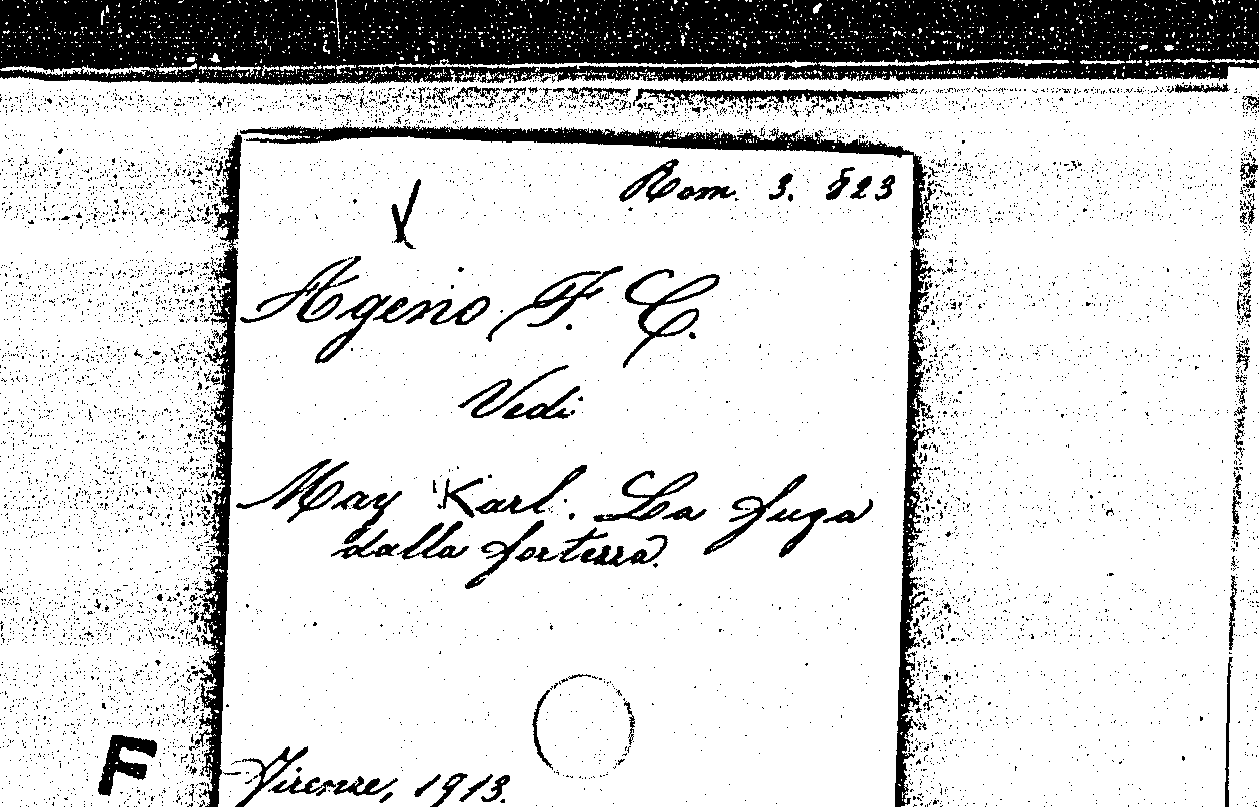 Rom. 3. 823
Ageno F. C.
Vedi
May Karl. La fuga
dalla fortezza.
F
Firenze, 1913.